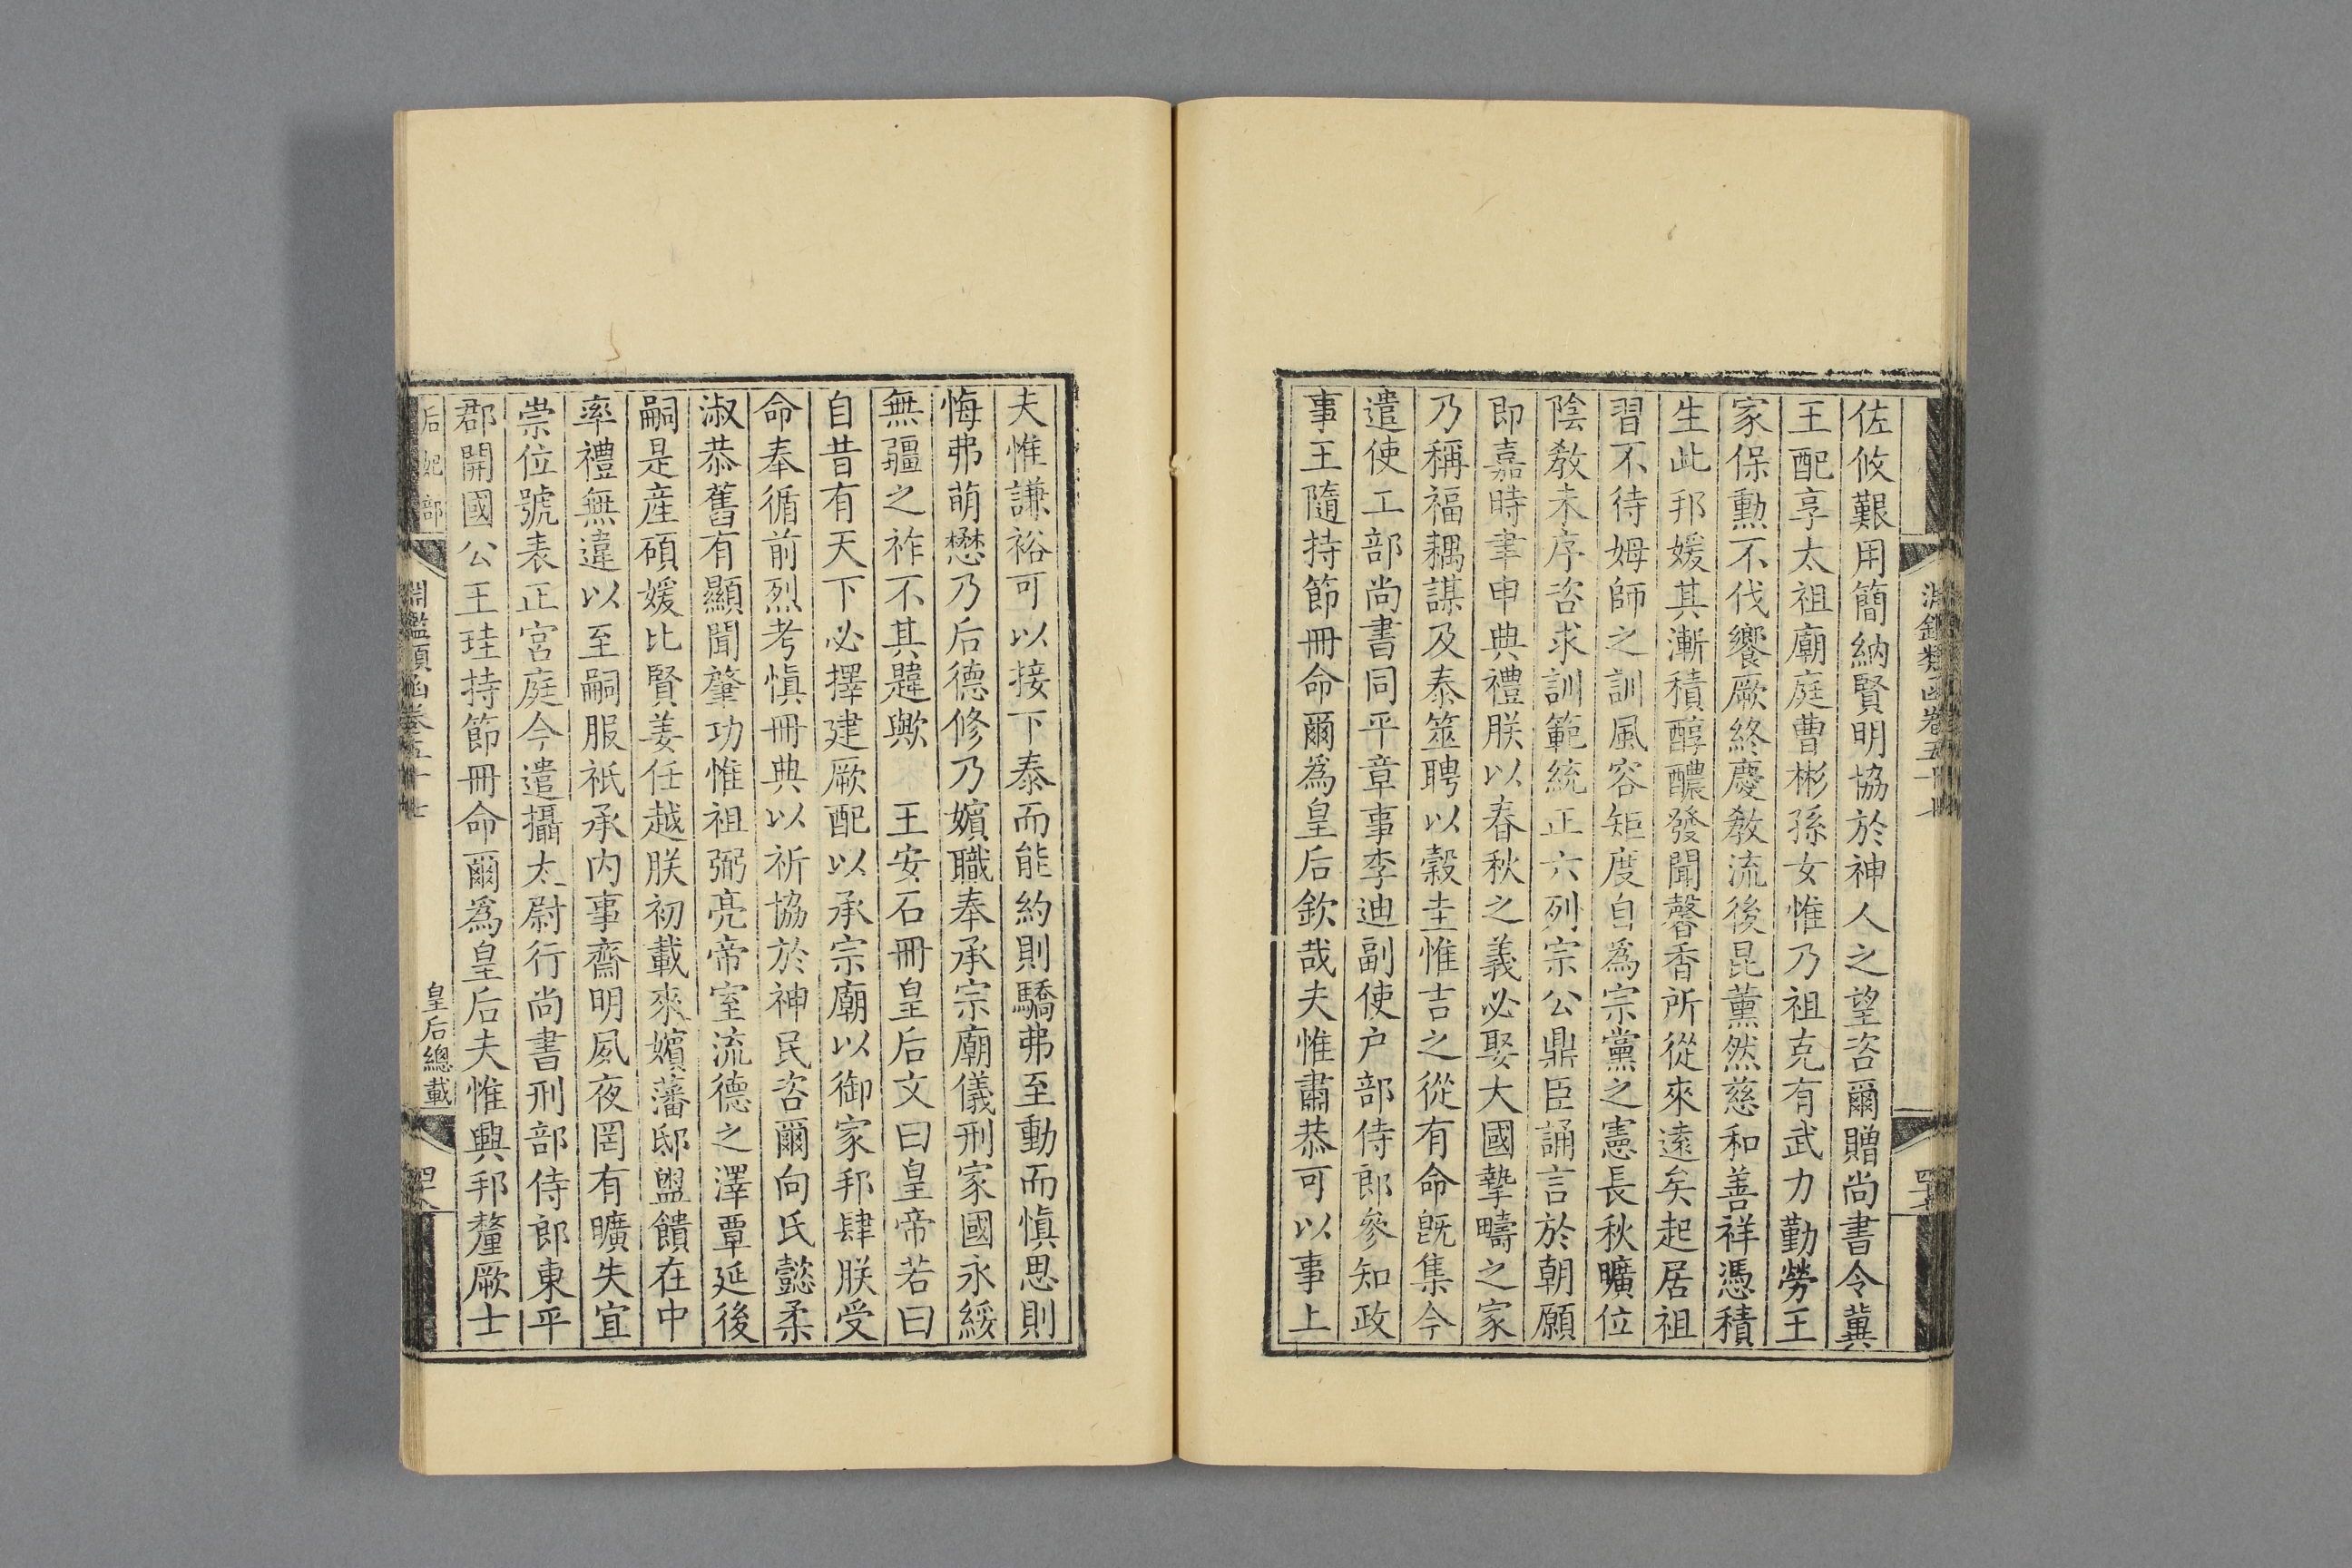 佐攸艱用簡納賢明協於神人之望咨爾贈尚書令冀
王配享太祖廟庭曹彬孫女惟乃祖克有武力勤勞王
家保勳不伐饗厥終慶敎流後昆薰然慈和善祥憑積
生此邦媛其漸積醇醲發聞馨香所從來遠矣起居祖
習不待姆師之訓風容矩度自爲宗黨之憲長秋曠位
陰敎未序咨求訓範統正六列宗公鼎臣誦言於朝願
卽嘉時聿申典禮朕以春秋之義必娶大國摯疇之家
乃稱福耦謀及泰筮聘以穀圭惟吉之從有命旣集今
遣使工部尚書同平章事李迪副使户部侍郎參知政
事王隨持節冊命爾爲皇后欽哉夫惟肅恭可以事上
夫惟謙裕可以接下泰而能約則驕弗至動而愼思則
悔弗萌懋乃后德修乃嬪職奉承宗廟儀刑家國永綏
無疆之祚不其韙歟　王安石冊皇后文曰皇帝若曰
自昔有天下必擇建厥配以承宗廟以御家邦肆朕受
命奉循前烈考愼冊典以祈協於神民咨爾向氏懿柔
淑恭舊有顯聞肇功惟祖弼亮帝室流德之澤覃延後
嗣是産碩媛比賢姜任越朕初載來嬪藩邸盥饋在中
率禮無違以至嗣服祇承内事齋明夙夜罔有曠失宜
崇位號表正宮庭今遣攝太尉行尚書刑部侍郎東平
郡開國公王珪持節冊命爾爲皇后夫惟興邦釐厥士
后妃部
淵鑑類函卷五十七
皇后總載